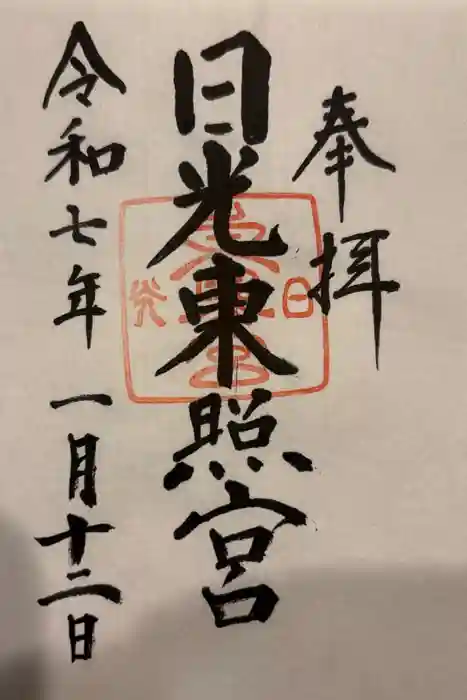 奉拝
日光東照宮
令和七年一月十二日